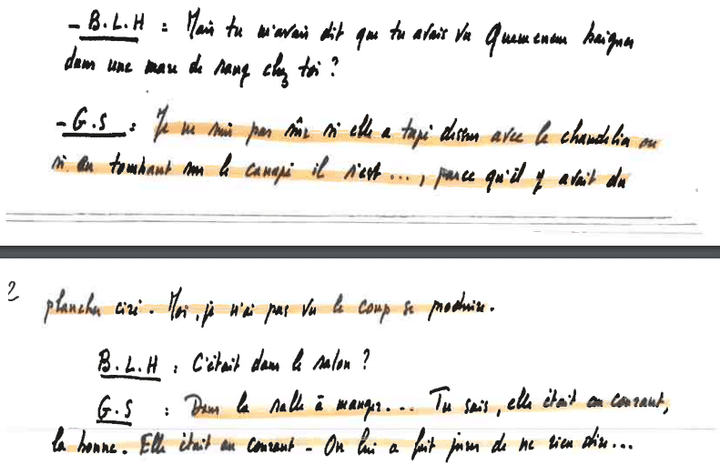 - B.L.H : Mais tu m'avais dit que tu avais vu Quemeneur baigner
dans une mare de sang chez toi ?
- G.S : Je ne suis pas sûr si elle a tapé dessus avec le chandelier ou
si en tombant sur le canapé il s'est ..., parce qu'il y avait du
2 plancher ciré. Moi, je n'ai pas vu le coup se produire.
B.L.H : C'était dans le salon ?
G.S : Dans la salle à manger... Tu sais, elle était au courant,
la bonne. Elle était au courant - On lui a fait jurer de ne rien dire...